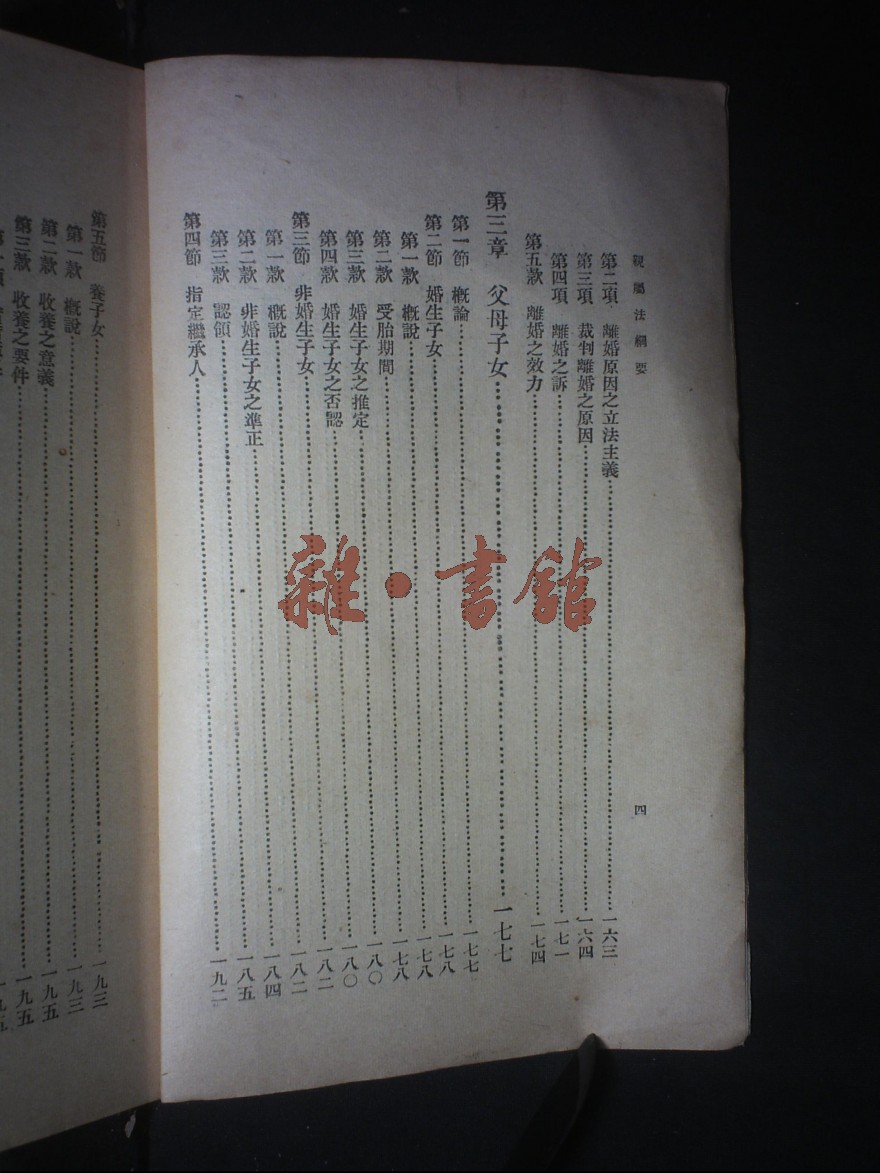 親屬法綱要 四
第二項 離婚原因之立法主義……一六三
第三項 裁判離婚之原因……一六四
第四項 離婚之訴……一七一
第五款 離婚之效力……一七四
第三章 父母子女……一七七
第一節 概論……一七七
第二節 婚生子女……一七八
第一款 概說……一七八
第二款 受胎期間……一七八
第三款 婚生子女之推定……一八〇
第四款 婚生子女之否認……一八〇
第三節 非婚生子女……一八二
第一款 概說……一八二
第二款 非婚生子女之準正……一八四
第三款 認領……一八五
第四節 指定繼承人……一九二
第五節 養子女……一九三
第一款 概說……一九三
第二款 收養之意義……一九五
第三款 收養之要件……一九五
雜·書館